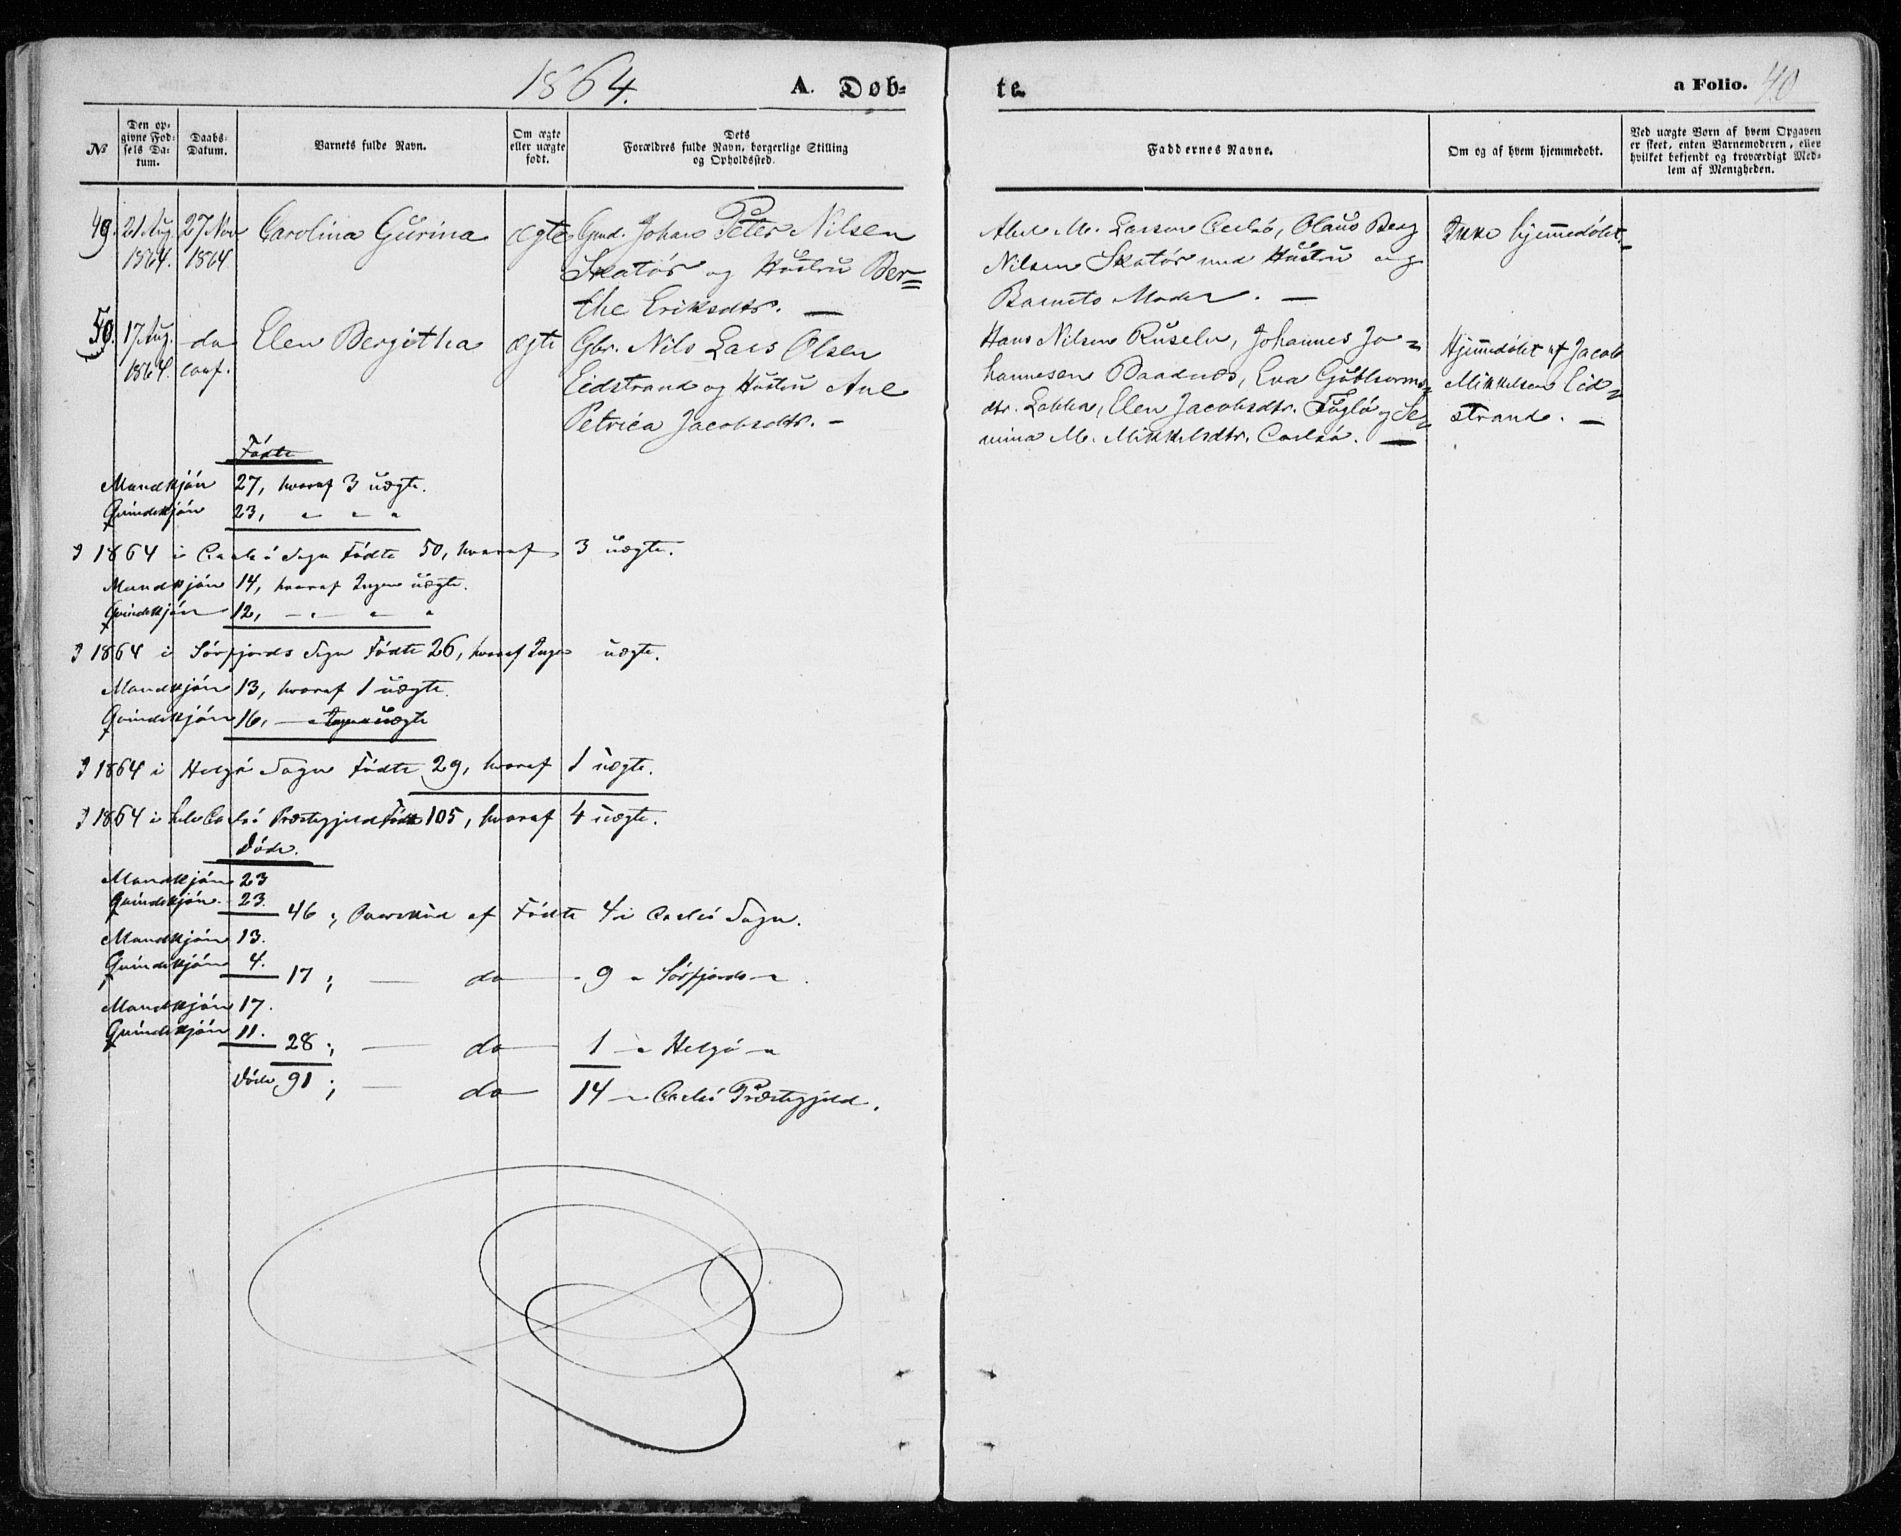 1864. A. Døb-
te. a Folio. 40
№
Den op-
givne Fød-
sels Da-
tum.
Daabs-
Datum.
Barnets fulde Navn.
Om ægte
eller uægte
født.
Dets
Forældres fulde Navn, borgerlige Stilling
og Opholdssted.
Faddernes Navne.
Om og af hvem hjemmedøbt.
Ved uægte Børn af hvem Opgaven
er skeet, enten Barnemoderen, eller
hvilket bekjendt og troværdigt Med-
lem af Menigheden.
49. 21 Aug 27 Nov Carolina Gurina ægte Gmd. Johan Peter Nilsen
1864. 1864 Skatør og Hustru Ber=
the Eriksdtr. —
M. Larsen Carlsø, Olaus Berg
Nilsen Skatør med Hustru og
Barnets Moder. —
Ikke hjemmedøbt. —
50. 17 Aug. do Elen Bergitha ægte Gbr. Nils Lars Olsen
1864. conf. Eidstrand og Hustru Ane
Petrica Jacobsdtr. —
Hans Nilsen Ruseln, Johannes Jo=
hannesen Baadnes, Eva Guthorms=
dtr. Lokka, Elen Jacobsdtr. Fuglø og Se=
mina M. Mikkelsdtr. Carlsø. —
Hjemmedøbt af Jacob
Mikkelsen Eid=
strand. —
Fødte
Mandkjøn 27, hvoraf 3 uægte.
Qvindekjøn 23, " " "
I 1864 i Carlsø Sogn Fødte 50, hvoraf 3 uægte.
Mandkjøn 14, hvoraf Ingen uægte.
Qvindekjøn 12, — " — " "
I 1864 i Sørfjords Sogn Fødte 26, hvoraf Ingen uægte.
Mandkjøn 13, hvoraf 1 uægte.
Qvindekjøn 16, — " Ingen uægte
I 1864 i Helgø Sogn Fødte 29, hvoraf 1 uægte.
I 1864 i hele Carlsø Præstegjeld Fødte 105, hvoraf 4 uægte.
Døde.
Mandkjøn 23
Qvindekjøn. 23.
46; Overskud af Fødte 4 i Carlsø Sogn.
Mandkjøn 13.
Qvindekjøn 4.
17; — do — " 9 " Sørfjords "
Mandkjøn 17.
Qvindekjøn 11.
28; — do — 1 — " Helgø — "
Døde 91; — do — 14 — " Carlsø Præstegjeld.